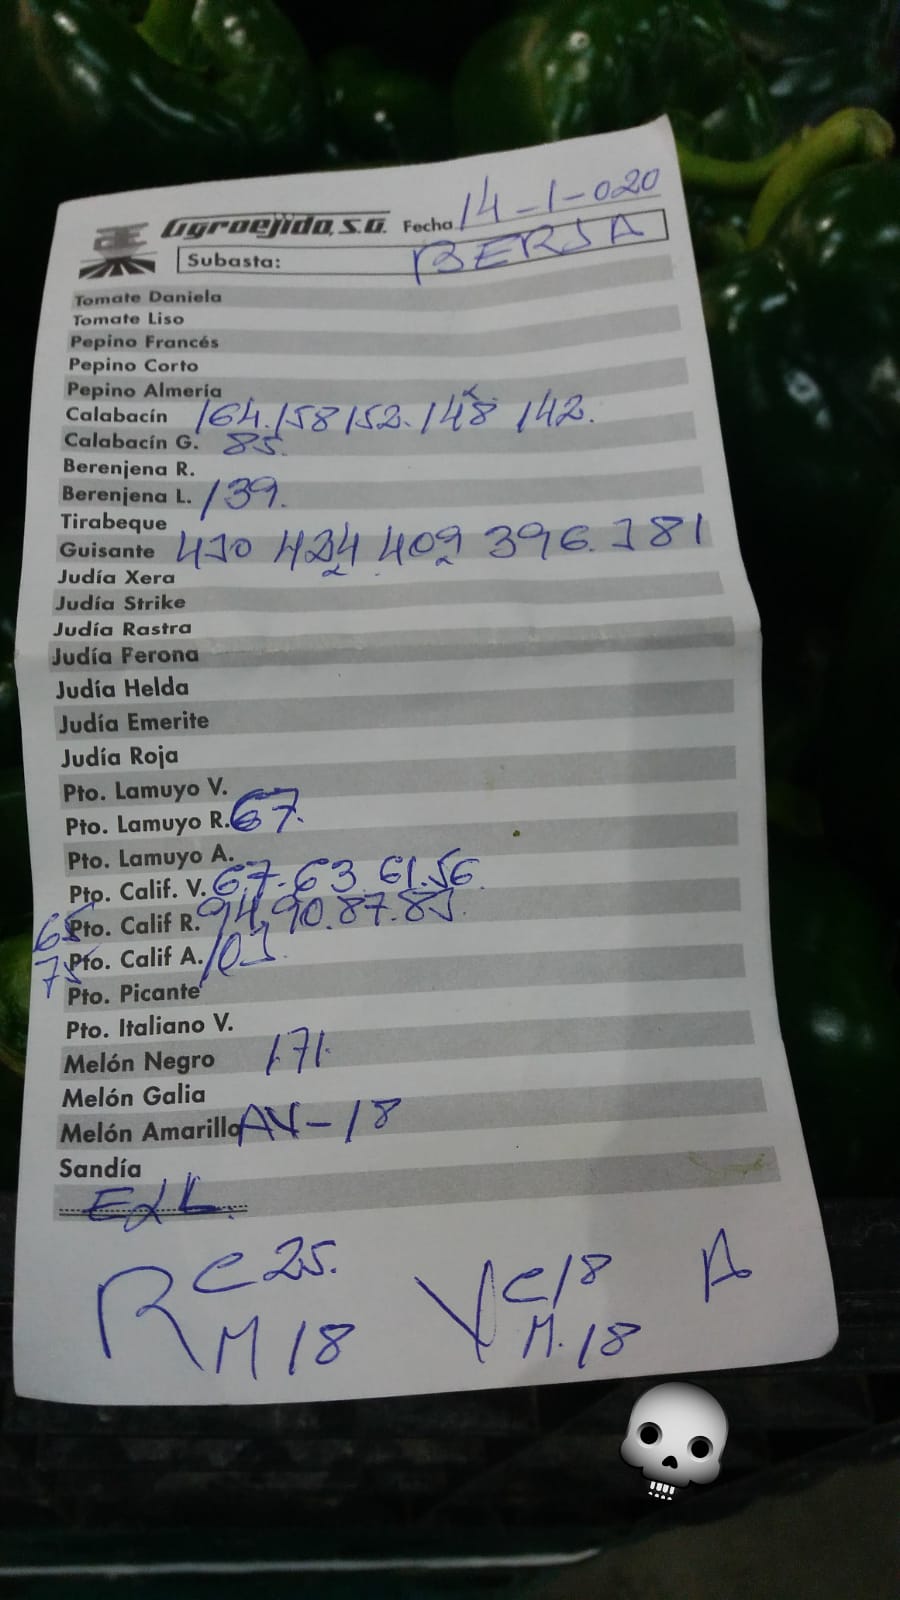 Agroejido, S.A. Fecha 14-1-020
Subasta: BERJA
Tomate Daniela
Tomate Liso
Pepino Francés
Pepino Corto
Pepino Almería
Calabacín 164. 158 152. 148 142.
Calabacín G. 85.
Berenjena R.
Berenjena L. 139.
Tirabeque
Guisante 424 409 396. 381
Judía Xera
Judía Strike
Judía Rastra
Judía Ferona
Judía Helda
Judía Emerite
Judía Roja
Pto. Lamuyo V.
Pto. Lamuyo R. 67.
Pto. Lamuyo A.
Pto. Calif. V. 67. 63 61. 56.
65 Pto. Calif R. 94, 90. 87. 83.
75 Pto. Calif A. 103.
Pto. Picante
Pto. Italiano V.
Melón Negro 171.
Melón Galia
Melón Amarillo AV-18
Sandía
R C 25. V C 18 A
M 18 M. 18